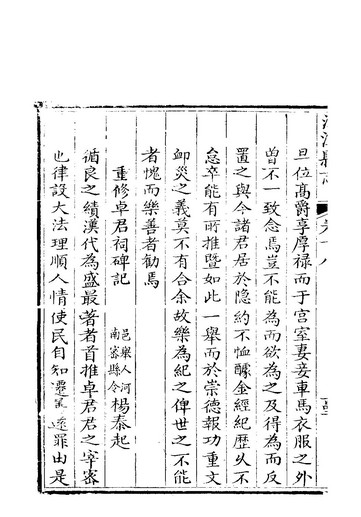 旦位髙爵享厚禄而于宫室妻妾車馬衣服之外
曽不一致念焉豈不能為而欲為之及得為而反
置之與今諸君居於隐約不恤醵金經紀歴乆不
怠卒能有所推曁如此一舉而於崇德報功重文
䘏災之義莫不有合余故樂為紀之俾世之不能
者愧而樂善者勸焉
重修卓君祠碑記
邑舉人河南蓚縣令楊泰起
循良之績漢代為盛最著者首推卓君君之宰密
也律設大法理順人情使民自知遷
罪由是